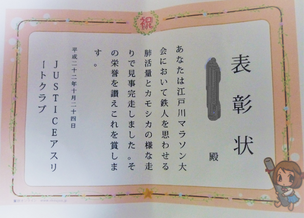 祝
表彰状
殿
あなたは江戸川マラソン大
会において鉄人を思わせる
肺活量とカモシカの様な走
りで見事完走しました。そ
の栄誉を讃えこれを賞しま
す。
平成二十二年十月二十四日
JUSTICEアスリ
ートクラブ